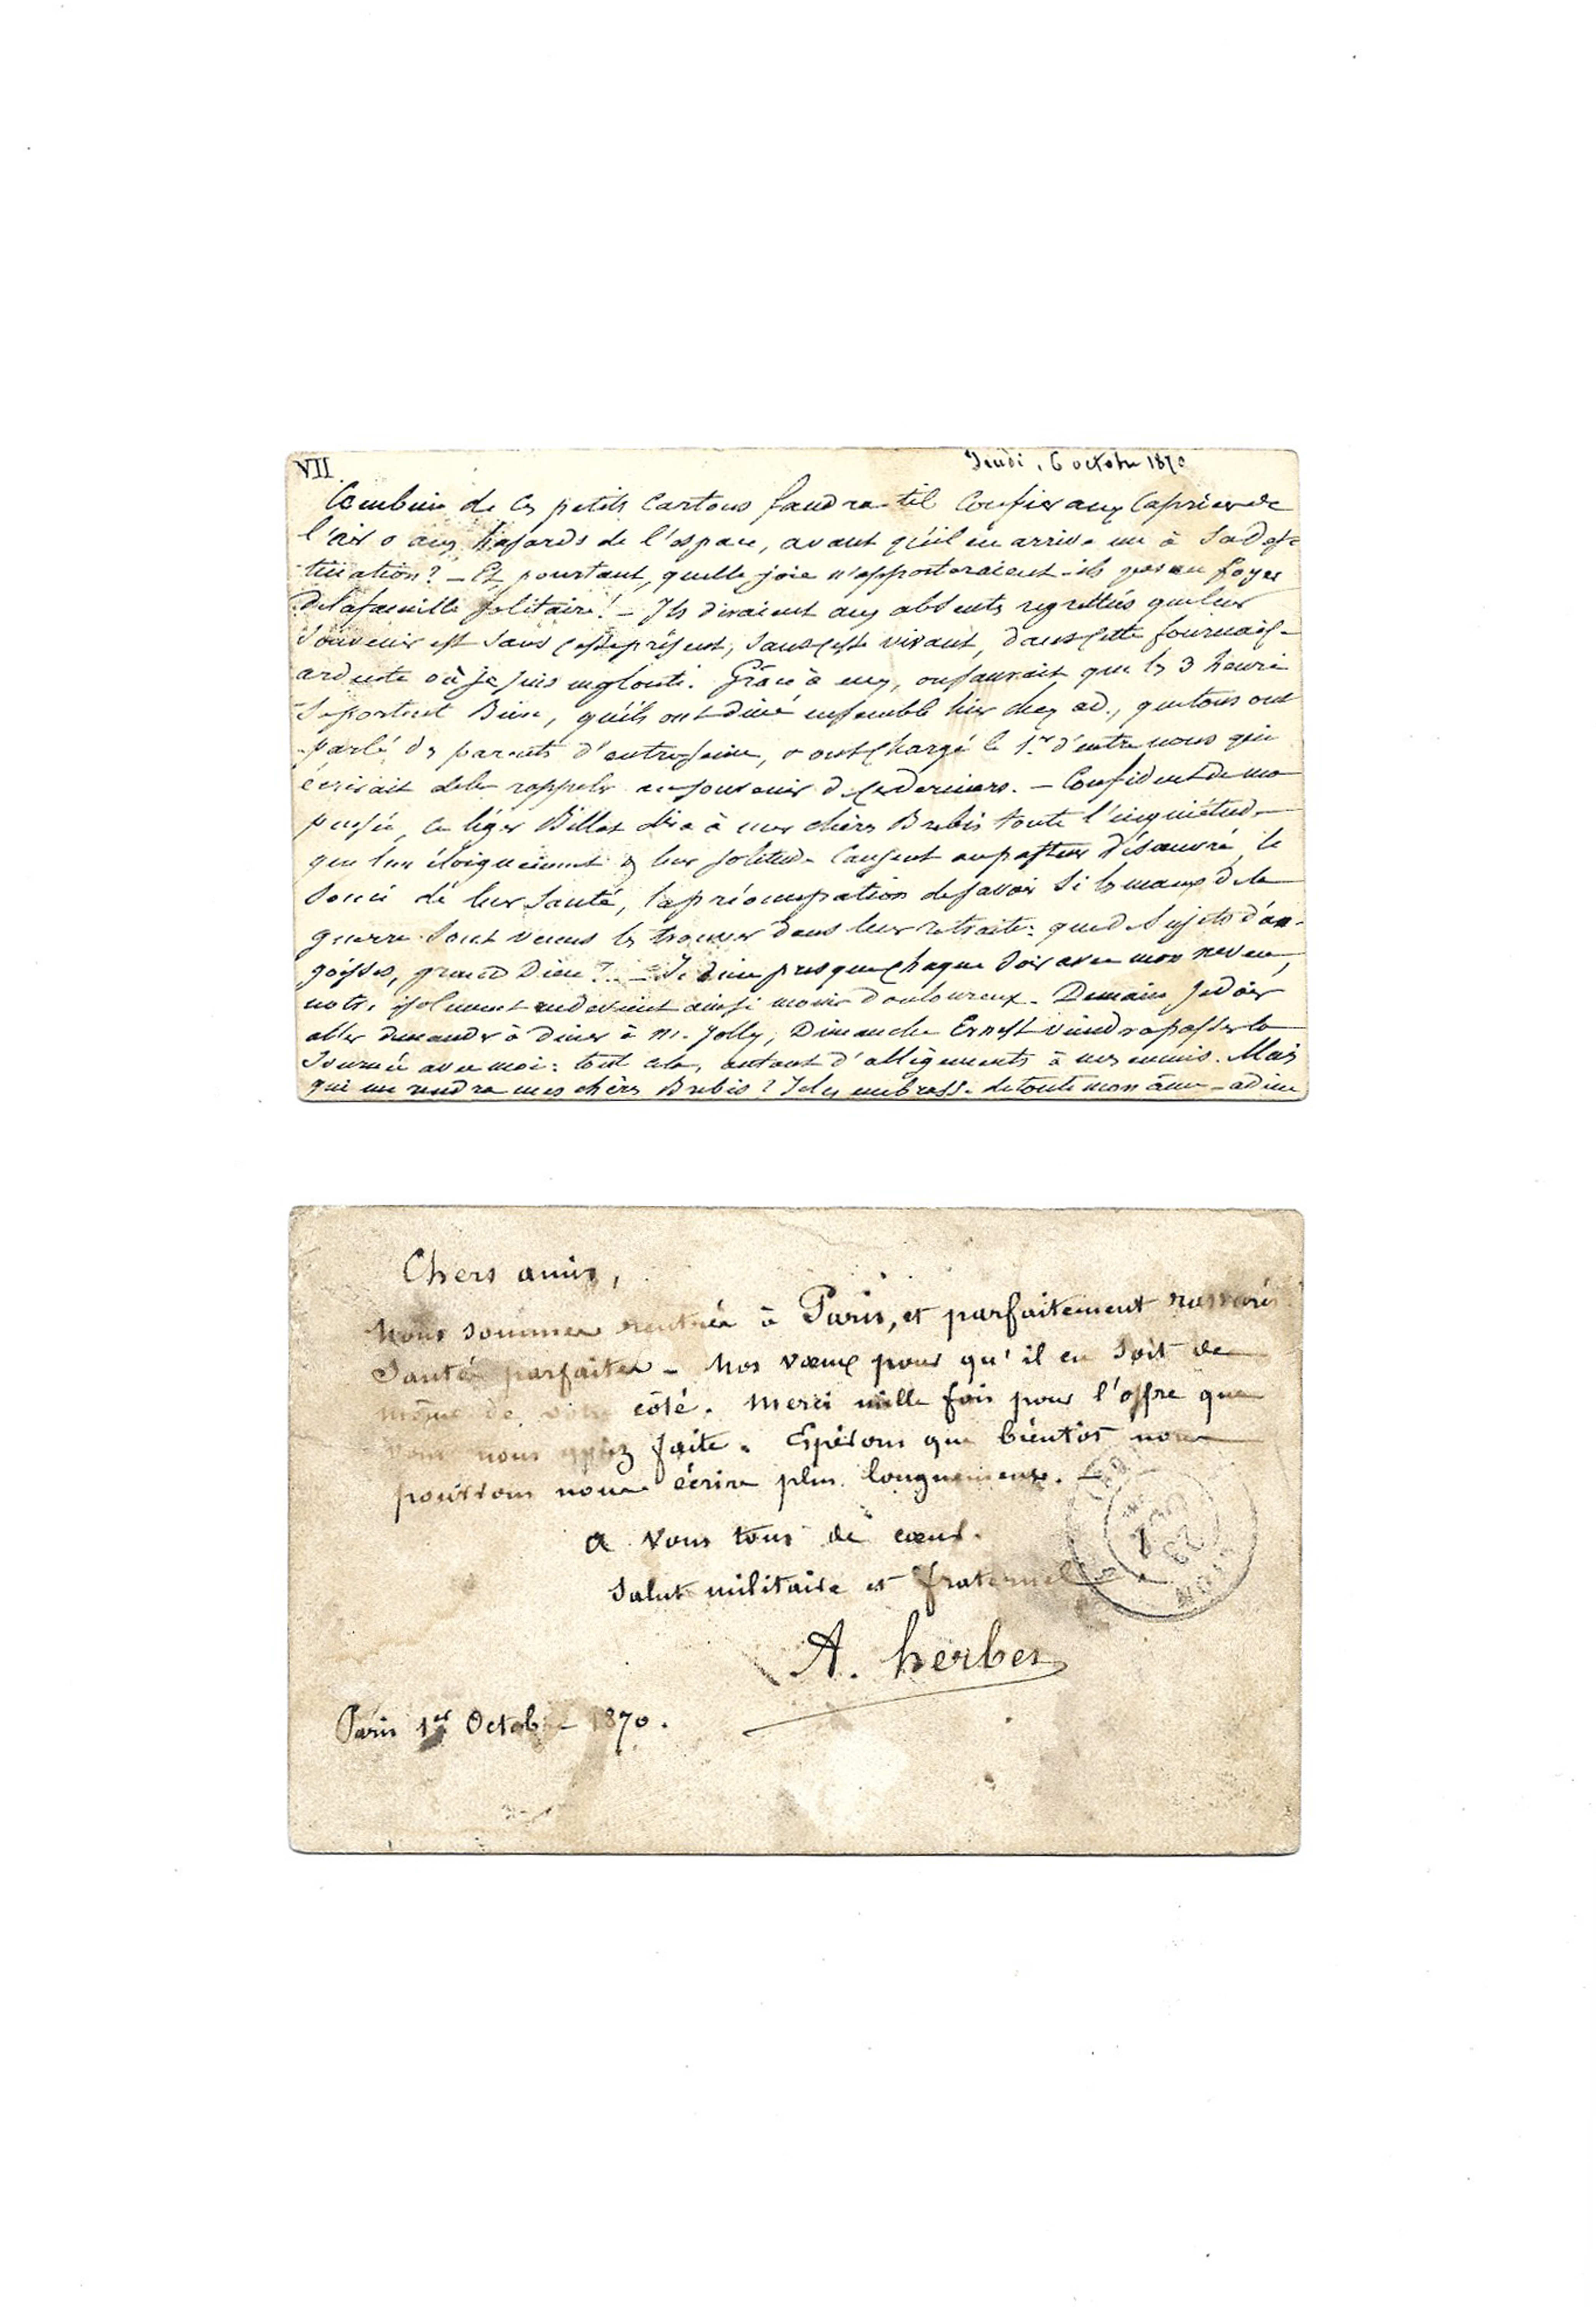 VII.
Jeudi, 6 octobre 1870
Combien de ces petits cartons faudra-t-il confier aux caprices de
l'air & aux hasards de l'espace, avant qu'il en arrive un à sa des-
tination? – Et pourtant, quelle joie n'apporteraient-ils pas au foyer
de la famille solitaire! – Ils diraient aux absents regrettés que leur
souvenir est sans cesse présent, sans cesse vivant, dans cette fournaise
ardente où je suis englouti. Grâce à eux, on saurait que les 3
se portent bien, qu'ils ont dîné ensemble hier chez ad., que tous ont
parlé des parents d'outre-Seine, & ont chargé le 1er d'entre nous qui
écrirait de les rappeler au souvenir de ces derniers. – Confident de ma
pensée, ce léger billet dira à mes chères Brebis toute l'inquiétude
que leur éloignement & leur solitude causent au pasteur désœuvré, le
souci de leur santé, la préoccupation de savoir si les maux de la
guerre sont venus les trouver dans leur retraite: que de sujets d'an-
goisses, grand Dieu?.. – Je dîne presque chaque soir avec mon neveu,
notre isolement en devient ainsi moins douloureux. Demain je dois
aller demander à dîner à M. Jolly, Dimanche Ernest viendra passer la
journée avec moi: tout cela, autant d'allègements à mes ennuis. Mais
qui me rendra mes chères Brebis? Je les embrasse de toute mon âme – adieu
Chers amis,
Nous sommes rentrés à Paris, et parfaitement rassurés
Santés parfaites – Nos vœux pour qu'il en soit de
même de votre côté. Merci mille fois pour l'offre que
vous nous faite. Espérons que bientôt nous
pourrons nous écrire plus longuement. –
A vous tous de cœur.
Salut militaire et fraternel
A. herbes
Paris 1er Octobre 1870.